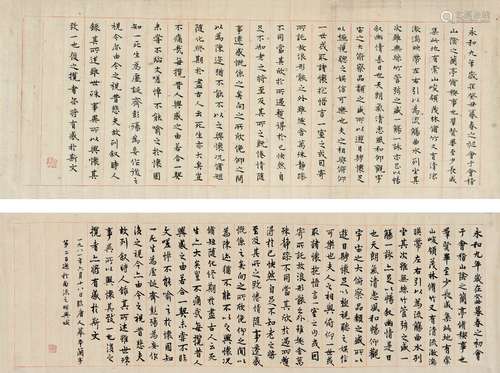 永和九年歲在癸丑暮春之初會于會稽
山陰之蘭亭脩稧事也羣賢畢至少長咸
集此地有崇山峻領茂林脩竹又有清流
激湍暎帶左右引以為流觴曲水列坐其
次雖無絲竹管弦之盛一觴一詠亦足以暢
敘幽情是日也天朗氣清惠風和暢仰觀
宇宙之大俯察品類之盛所以遊目騁懷足
以極視聽之娛信可樂也夫人之相與俯仰
一世或取諸懷抱悟言一室之內或因寄
所託放浪形骸之外雖趣舍萬殊靜躁
不同當其欣於所遇蹔得於己快然自
足不知老之將至及其所之既惓情隨
事遷感慨係之矣向之所欣俛仰之間
以為陳迹猶不能不以之興懷況脩短
隨化終期於盡古人云死生亦大矣豈
不痛哉每攬昔人興感之由若合一契
未嘗不臨文嗟悼不能喻之於懷固
知一死生為虛誕齊彭殤為妄作後之
視今亦由今之視昔悲夫故列敘時人
錄其所述雖世殊事異所以興懷其
致一也後之攬者亦將有感於斯文
永和九年歲在癸丑暮春之初
會于會稽山陰之蘭亭脩稧事也
羣賢畢至少長咸集此地有崇
山峻領茂林脩竹又有清流激湍
暎帶左右引以為流觴曲水列
坐其次雖無絲竹管弦之盛一
觴一詠亦足以暢敘幽情是日
也天朗氣清惠風和暢仰觀
宇宙之大俯察品類之盛所以
遊目騁懷足以極視聽之娛信
可樂也夫人之相與俯仰一世或
取諸懷抱悟言一室之內或因
寄所託放浪形骸之外雖趣舍萬
殊靜躁不同當其欣於所遇蹔得
於己快然自足不知老之將至及
其所之既惓情隨事遷感
慨係之矣向之所欣俛仰之間以
為陳迹猶不能不以之興懷況
脩短隨化終期於盡古人云死
生亦大矣豈不痛哉每攬昔人
興感之由若合一契未嘗不臨
文嗟悼不能喻之於懷固知
一死生為虛誕齊彭殤為妄作
後之視今亦由今之視昔悲夫
故列敘時人錄其所述雖世殊
事異所以興懷其致一也後之
攬者亦將有感於斯文
一九八一年六月十八日臨唐人摹本蘭亭
第二百通於